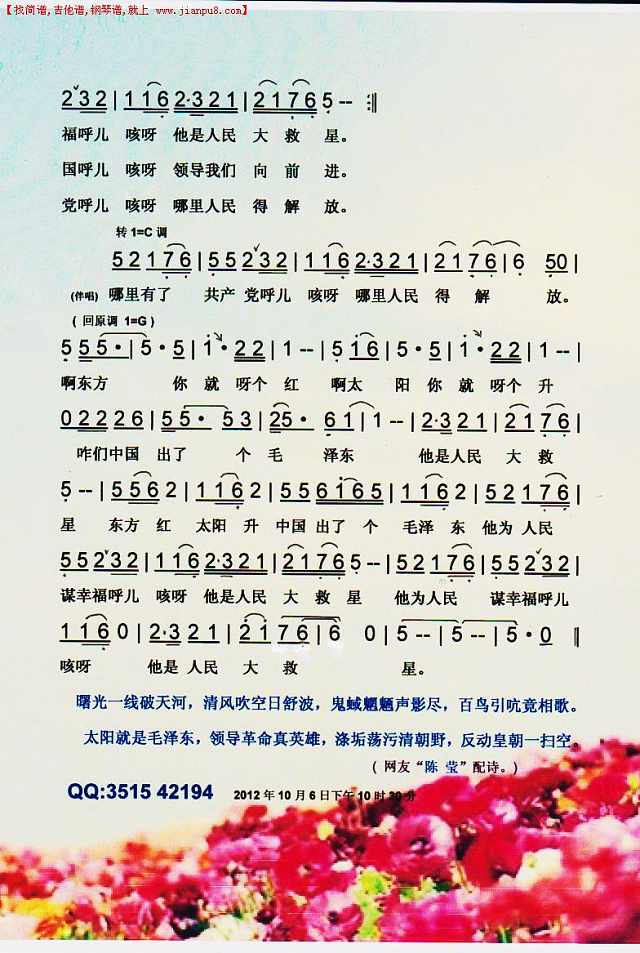 【找简谱,吉他谱,钢琴谱,就上 www.jianpu8.com】
2 3 2 | 1 1 6 2·3 2 1 | 2 1 7 6 5 -- :||
福呼儿 咳呀 他是人民 大 救 星。
国呼儿 咳呀 领导我们 向 前 进。
党呼儿 咳呀 哪里人民 得 解 放。
转 1=C 调
5 2 1 7 6 | 5 5 2 3 2 | 1 1 6 2·3 2 1 | 2 1 7 6 | 6 5 0 |
(伴唱) 哪里有了 共产 党呼儿 咳呀 哪里人民 得 解 放。
( 回原调 1=G )
5 5 5 · | 5 · 5 | 1 · 2 2 | 1 -- | 5 1 6 | 5 · 5 | 1 · 2 2 | 5 -- |
啊东方 你 就 呀个 红 啊太 阳 你 就 呀个 升
0 2 2 2 6 | 5 5 · 5 3 | 2 5 · 6 1 | 1 -- | 2·3 2 1 | 2 1 7 6 |
咱们中国 出了 个 毛 泽东 他是人民 大 救
5 -- | 5 5 6 2 | 1 1 6 2 | 5 5 6 1 6 5 | 1 1 6 2 | 5 2 1 7 6 |
星 东方 红 太阳 升 中国 出了 个 毛泽 东 他为 人民
5 5 2 3 2 | 1 1 6 2·3 2 1 | 2 1 7 6 5 -- | 5 2 1 7 6 | 5 5 2 3 2 |
谋幸福呼儿 咳呀 他是人民 大 救 星 他为人民 谋幸福呼儿
1 1 6 0 | 2·3 2 1 | 2 1 7 6 | 6 0 | 5 -- | 5 -- | 5 · 0 ||
咳呀 他是 人民 大 救 星。
曙光一线破天河，清风吹空日舒波，鬼蜮魍魉声影尽，百鸟引吭竟相歌。
太阳就是毛泽东，领导革命真英雄，涤垢荡污清朝野，反动皇朝一扫空。
( 网友“陈 莹”配诗。)
QQ:3515 42194 2012 年 10 月 6 日下午 10 时 30 分